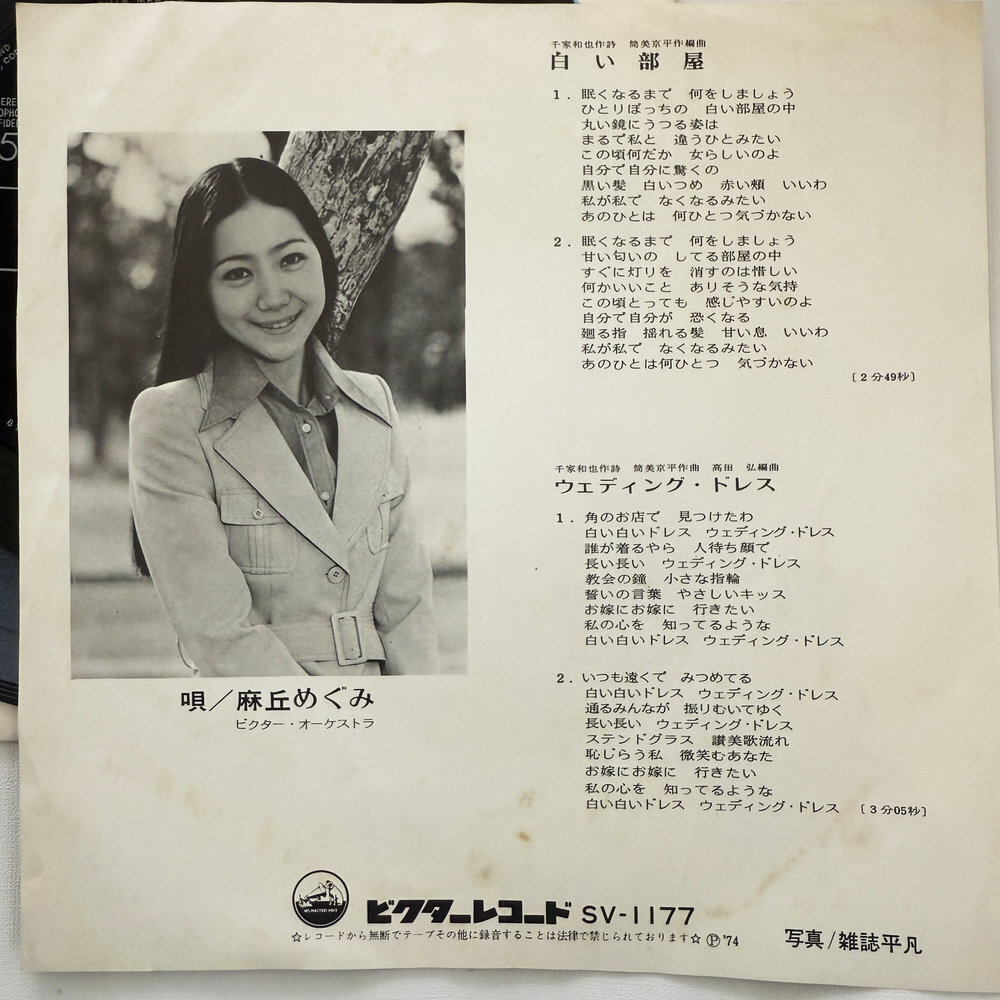 千家和也作詩　筒美京平作編曲
白い部屋
1．眠くなるまで　何をしましょう
ひとりぼっちの　白い部屋の中
丸い鏡にうつる姿は
まるで私と　違うひとみたい
この頃何だか　女らしいのよ
自分で自分に驚くの
黒い髪　白いつめ　赤い頬　いいわ
私が私で　なくなるみたい
あのひとは　何ひとつ気づかない
2．眠くなるまで　何をしましょう
甘い匂いの　してる部屋の中
すぐに灯りを　消すのは惜しい
何かいいこと　ありそうな気持
この頃とっても　感じやすいのよ
自分で自分が　恐くなる
廻る指　揺れる髪　甘い息　いいわ
私が私で　なくなるみたい
あのひとは何ひとつ　気づかない
〔2分49秒〕
千家和也作詩　筒美京平作曲　高田　弘編曲
ウェディング・ドレス
1．角のお店で　見つけたわ
白い白いドレス　ウェディング・ドレス
誰が着るやら　人待ち顔で
長い長い　ウェディング・ドレス
教会の鐘　小さな指輪
誓いの言葉　やさしいキッス
お嫁にお嫁に　行きたい
私の心を　知ってるような
白い白いドレス　ウェディング・ドレス
2．いつも遠くで　みつめてる
白い白いドレス　ウェディング・ドレス
通るみんなが　振りむいてゆく
長い長い　ウェディング・ドレス
ステンドグラス　讃美歌流れ
恥じらう私　微笑むあなた
お嫁にお嫁に　行きたい
私の心を　知ってるような
白い白いドレス　ウェディング・ドレス　〔3分05秒〕
唄／麻丘めぐみ
ビクター・オーケストラ
HIS MASTER'S VOICE
ビクターレコード SV-1177
☆レコードから無断でテープその他に録音することは法律で禁じられております☆ Ⓟ'74
写真/雑誌平凡